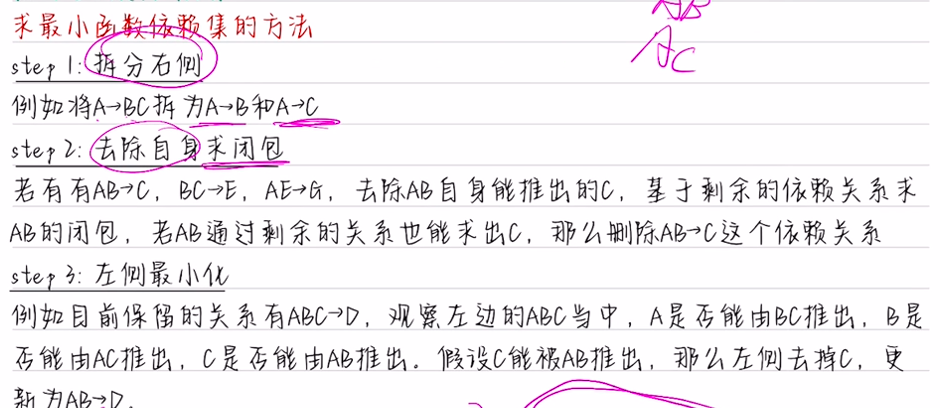 AB
AC
求最小函数依赖集的方法
step 1: 拆分右侧
例如将A→BC拆为A→B和A→C
step 2: 去除自身求闭包
若有有AB→C, BC→E, AE→G, 去除AB自身能推出的C, 基于剩余的依赖关系求
AB的闭包, 若AB通过剩余的关系也能求出C, 那么删除AB→C这个依赖关系
step 3: 左侧最小化
例如目前保留的关系有ABC→D, 观察左边的ABC当中, A是否能由BC推出, B是
否能由AC推出, C是否能由AB推出. 假设C能被AB推出, 那么左侧去掉C, 更
新为AB→D.